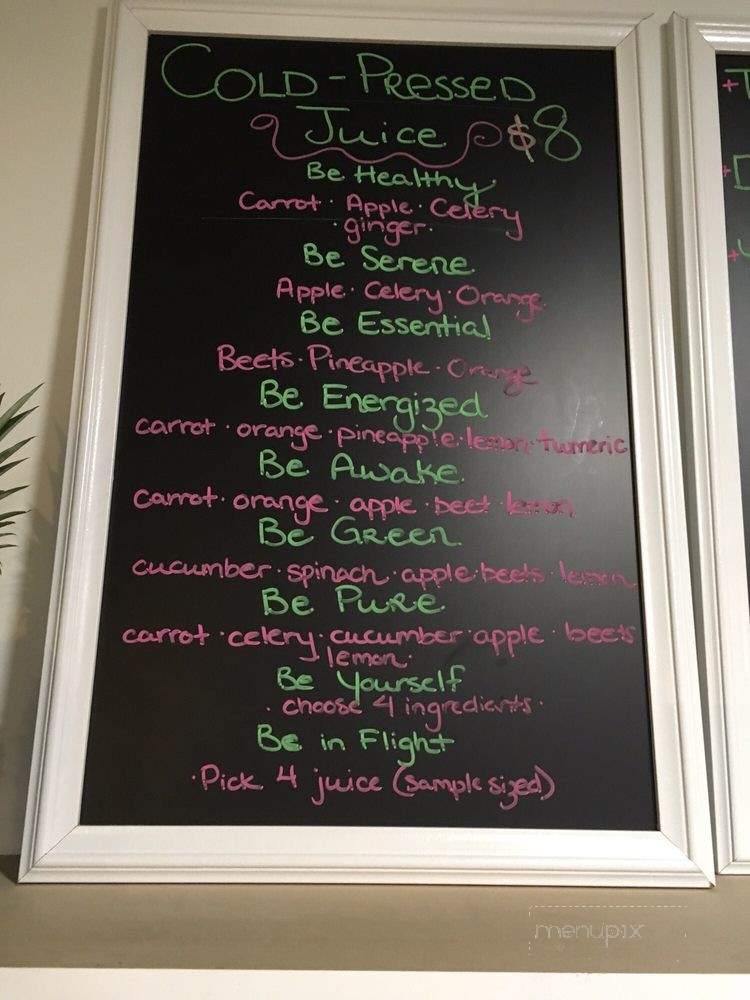 COLD-PRESSED
Juice $8
Be Healthy
Carrot · Apple · Celery
· ginger ·
Be Serene
Apple · Celery · Orange
Be Essential
Beets · Pineapple · Orange
Be Energized
carrot · orange · pineapple · lemon · tumeric
Be Awake
carrot · orange · apple · beet · lemon
Be Green
cucumber · spinach · apple · beets · lemon
Be Pure
carrot · celery · cucumber · apple · beets
lemon ·
Be Yourself
· choose 4 ingredients ·
Be in Flight
· Pick 4 juice (sample sized)
menupix